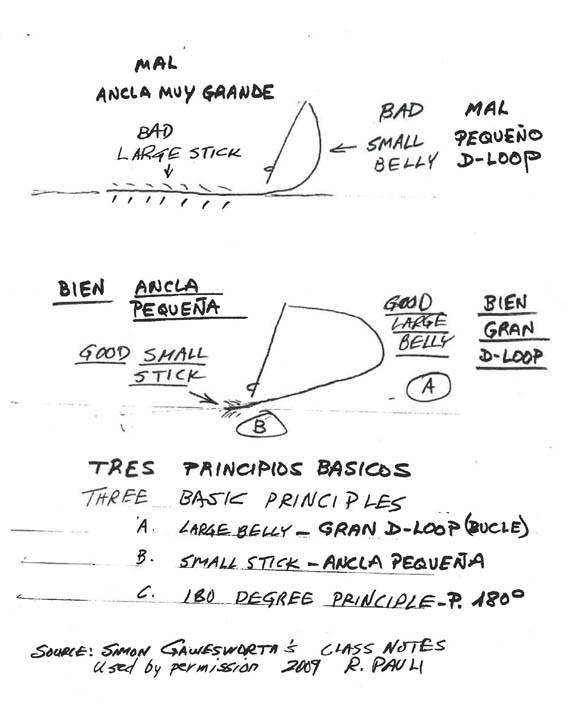 MAL
ANCLA MUY GRANDE
BAD
LARGE STICK
BAD MAL
SMALL PEQUEÑO
BELLY D-LOOP
BIEN ANCLA
PEQUEÑA
GOOD SMALL
STICK
GOOD BIEN
LARGE GRAN
BELLY D-LOOP
A
B
TRES PRINCIPIOS BASICOS
THREE BASIC PRINCIPLES
A. LARGE BELLY - GRAN D-LOOP (BUCLE)
B. SMALL STICK - ANCLA PEQUEÑA
C. 180 DEGREE PRINCIPLE - P. 180º
SOURCE: SIMON GAWESWORTH'S CLASS NOTES
Used by permission 2009 R. PAULI